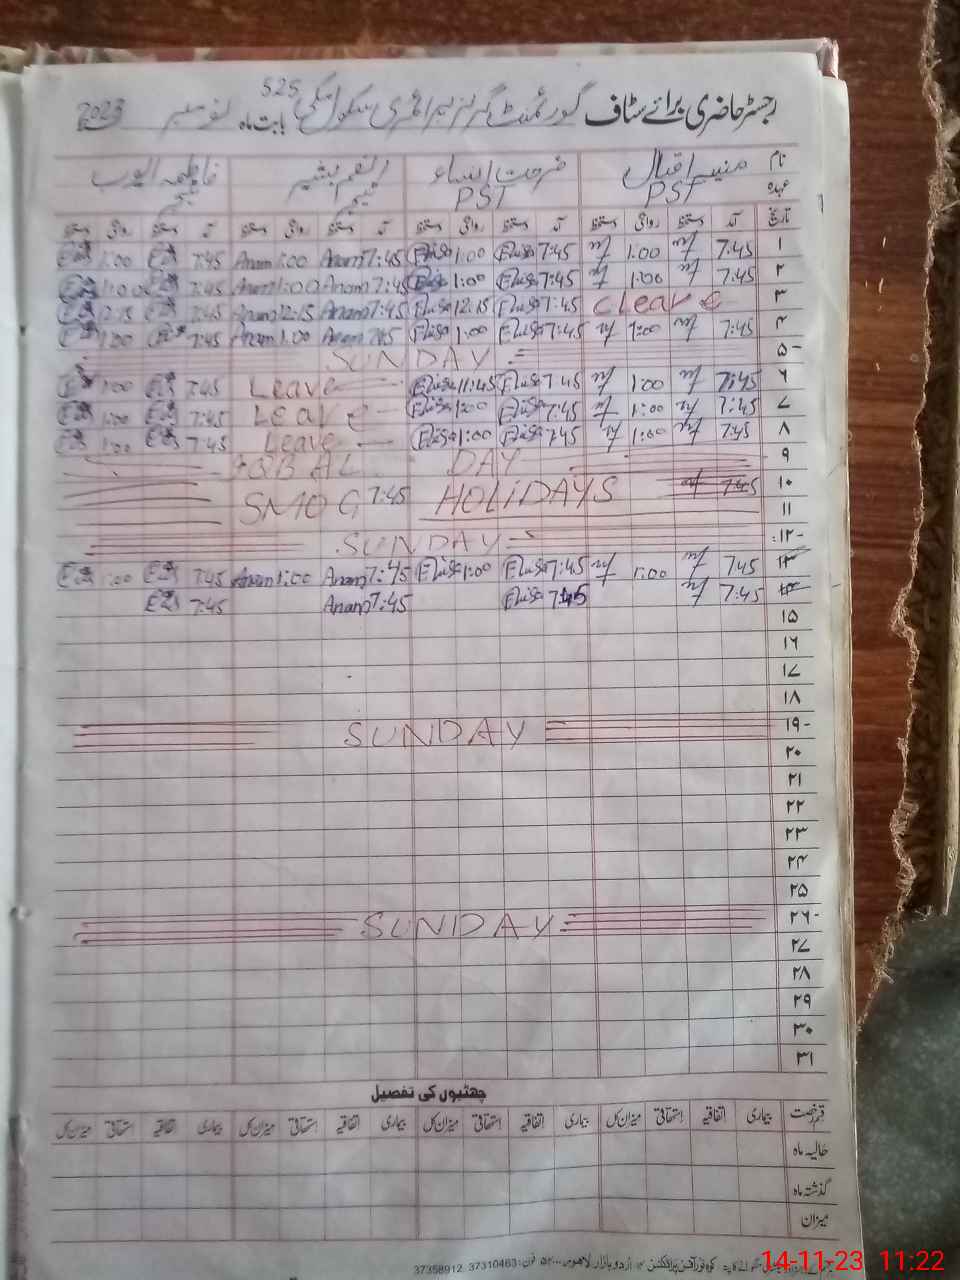 رجسٹر حاضری برائے سٹاف گورنمنٹ گرلز پرائمری سکول 525 بابت ماہ نومبر 2023
نام منیبہ اقبال فرحت النساء انعم بشیر فاطمہ ایوب
عہدہ PST PST
تاریخ آمد دستخط روانگی دستخط آمد دستخط روانگی دستخط آمد دستخط روانگی دستخط آمد دستخط روانگی دستخط
۱ 7:45 1:00 7:45 1:00 7:45 Anam 1:00 Anam 7:45 1:00
۲ 7:45 1:00 7:45 1:00 7:45 Anam 1:00 Anam 7:45 1:00
۳ cLeave 7:45 12:15 7:45 Anam 12:15 Anam 7:45 12:15
۴ 7:45 1:00 7:45 1:00 7:45 Anam 1:00 Anam 7:45 1:00
۵ SUNDAY
۶ 7:45 1:00 7:45 11:45 Leave 7:45 1:00
۷ 7:45 1:00 7:45 1:00 Leave 7:45 1:00
۸ 7:45 1:00 7:45 1:00 Leave 7:45 1:00
۹ IQBAL DAY
۱۰ 7:45 SMOG 7:45 HOLiDAYS
۱۱
۱۲ SUNDAY
۱۳ 7:45 1:00 7:45 1:00 7:45 Anam 1:00 Anam 7:45 1:00
۱۴ 7:45 7:45 7:45 Anam 7:45
۱۵
۱۶
۱۷
۱۸
۱۹ SUNDAY
۲۰
۲۱
۲۲
۲۳
۲۴
۲۵
۲۶ SUNDAY
۲۷
۲۸
۲۹
۳۰
۳۱
چھٹیوں کی تفصیل
قسم رخصت بیماری اتفاقیہ استحقاقی میزان کل بیماری اتفاقیہ استحقاقی میزان کل بیماری اتفاقیہ استحقاقی میزان کل بیماری اتفاقیہ استحقاقی میزان کل
حالیہ ماہ
گذشتہ ماہ
میزان
اردو بازار لاہور فون: 37310463 37358912
14-11-23 11:22